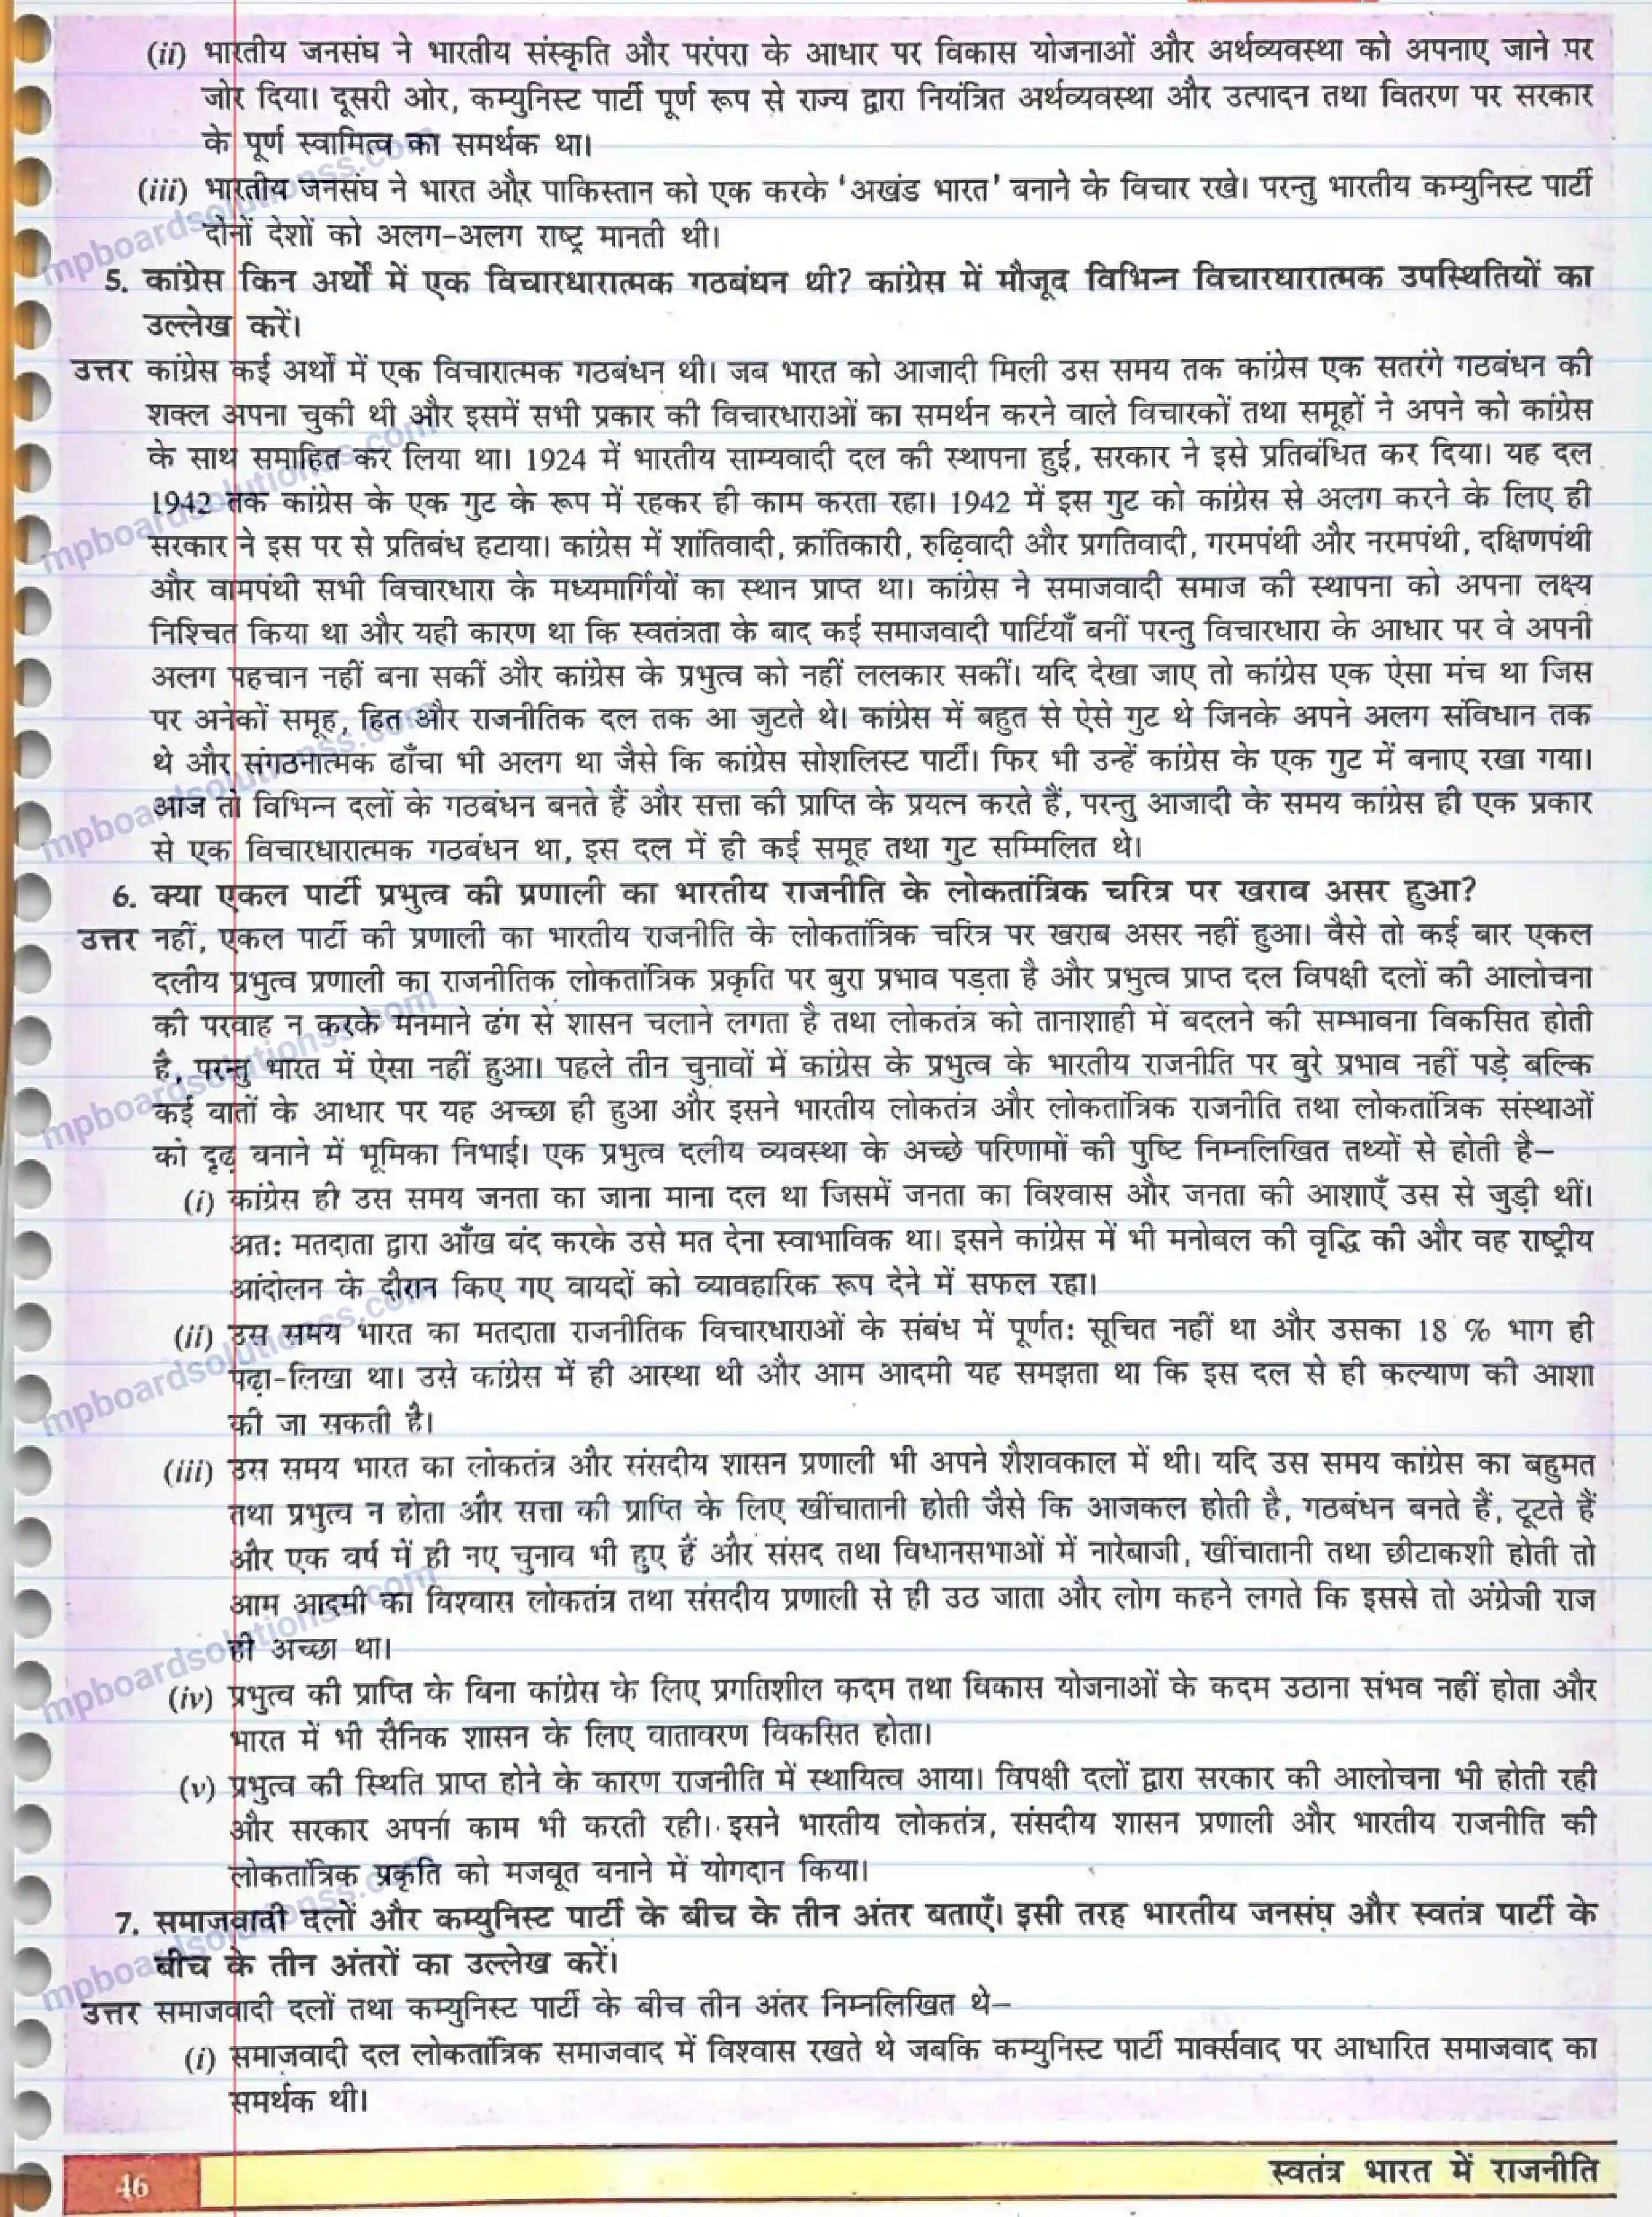 (ii) भारतीय जनसंघ ने भारतीय संस्कृति और परंपरा के आधार पर विकास योजनाओं और अर्थव्यवस्था को अपनाए जाने पर
जोर दिया। दूसरी ओर, कम्युनिस्ट पार्टी पूर्ण रूप से राज्य द्वारा नियंत्रित अर्थव्यवस्था और उत्पादन तथा वितरण पर सरकार
के पूर्ण स्वामित्व का समर्थक था।
(iii) भारतीय जनसंघ ने भारत और पाकिस्तान को एक करके 'अखंड भारत' बनाने के विचार रखे। परन्तु भारतीय कम्युनिस्ट पार्टी
दोनों देशों को अलग-अलग राष्ट्र मानती थी।
5. कांग्रेस किन अर्थों में एक विचारधारात्मक गठबंधन थी? कांग्रेस में मौजूद विभिन्न विचारधारात्मक उपस्थितियों का
उल्लेख करें।
उत्तर कांग्रेस कई अर्थों में एक विचारात्मक गठबंधन थी। जब भारत को आजादी मिली उस समय तक कांग्रेस एक सतरंगे गठबंधन की
शक्ल अपना चुकी थी और इसमें सभी प्रकार की विचारधाराओं का समर्थन करने वाले विचारकों तथा समूहों ने अपने को कांग्रेस
के साथ समाहित कर लिया था। 1924 में भारतीय साम्यवादी दल की स्थापना हुई, सरकार ने इसे प्रतिबंधित कर दिया। यह दल
1942 तक कांग्रेस के एक गुट के रूप में रहकर ही काम करता रहा। 1942 में इस गुट को कांग्रेस से अलग करने के लिए ही
सरकार ने इस पर से प्रतिबंध हटाया। कांग्रेस में शांतिवादी, क्रांतिकारी, रुढ़िवादी और प्रगतिवादी, गरमपंथी और नरमपंथी, दक्षिणपंथी
और वामपंथी सभी विचारधारा के मध्यमार्गियों का स्थान प्राप्त था। कांग्रेस ने समाजवादी समाज की स्थापना को अपना लक्ष्य
निश्चित किया था और यही कारण था कि स्वतंत्रता के बाद कई समाजवादी पार्टियाँ बनीं परन्तु विचारधारा के आधार पर वे अपनी
अलग पहचान नहीं बना सकीं और कांग्रेस के प्रभुत्व को नहीं ललकार सकीं। यदि देखा जाए तो कांग्रेस एक ऐसा मंच था जिस
पर अनेकों समूह, हित और राजनीतिक दल तक आ जुटते थे। कांग्रेस में बहुत से ऐसे गुट थे जिनके अपने अलग संविधान तक
थे और संगठनात्मक ढाँचा भी अलग था जैसे कि कांग्रेस सोशलिस्ट पार्टी। फिर भी उन्हें कांग्रेस के एक गुट में बनाए रखा गया।
आज तो विभिन्न दलों के गठबंधन बनते हैं और सत्ता की प्राप्ति के प्रयत्न करते हैं, परन्तु आजादी के समय कांग्रेस ही एक प्रकार
से एक विचारधारात्मक गठबंधन था, इस दल में ही कई समूह तथा गुट सम्मिलित थे।
6. क्या एकल पार्टी प्रभुत्व की प्रणाली का भारतीय राजनीति के लोकतांत्रिक चरित्र पर खराब असर हुआ?
उत्तर नहीं, एकल पार्टी की प्रणाली का भारतीय राजनीति के लोकतांत्रिक चरित्र पर खराब असर नहीं हुआ। वैसे तो कई बार एकल
दलीय प्रभुत्व प्रणाली का राजनीतिक लोकतांत्रिक प्रकृति पर बुरा प्रभाव पड़ता है और प्रभुत्व प्राप्त दल विपक्षी दलों की आलोचना
की परवाह न करके मनमाने ढंग से शासन चलाने लगता है तथा लोकतंत्र को तानाशाही में बदलने की सम्भावना विकसित होती
है, परन्तु भारत में ऐसा नहीं हुआ। पहले तीन चुनावों में कांग्रेस के प्रभुत्व के भारतीय राजनीति पर बुरे प्रभाव नहीं पड़े बल्कि
कई बातों के आधार पर यह अच्छा ही हुआ और इसने भारतीय लोकतंत्र और लोकतांत्रिक राजनीति तथा लोकतांत्रिक संस्थाओं
को दृढ़ बनाने में भूमिका निभाई। एक प्रभुत्व दलीय व्यवस्था के अच्छे परिणामों की पुष्टि निम्नलिखित तथ्यों से होती है–
(i) कांग्रेस ही उस समय जनता का जाना माना दल था जिसमें जनता का विश्वास और जनता की आशाएँ उस से जुड़ी थीं।
अत: मतदाता द्वारा आँख बंद करके उसे मत देना स्वाभाविक था। इसने कांग्रेस में भी मनोबल की वृद्धि की और वह राष्ट्रीय
आंदोलन के दौरान किए गए वायदों को व्यावहारिक रूप देने में सफल रहा।
(ii) उस समय भारत का मतदाता राजनीतिक विचारधाराओं के संबंध में पूर्णत: सूचित नहीं था और उसका 18 % भाग ही
पढ़ा-लिखा था। उसे कांग्रेस में ही आस्था थी और आम आदमी यह समझता था कि इस दल से ही कल्याण की आशा
की जा सकती है।
(iii) उस समय भारत का लोकतंत्र और संसदीय शासन प्रणाली भी अपने शैशवकाल में थी। यदि उस समय कांग्रेस का बहुमत
तथा प्रभुत्व न होता और सत्ता की प्राप्ति के लिए खींचातानी होती जैसे कि आजकल होती है, गठबंधन बनते हैं, टूटते हैं
और एक वर्ष में ही नए चुनाव भी हुए हैं और संसद तथा विधानसभाओं में नारेबाजी, खींचातानी तथा छीटाकशी होती तो
आम आदमी का विश्वास लोकतंत्र तथा संसदीय प्रणाली से ही उठ जाता और लोग कहने लगते कि इससे तो अंग्रेजी राज
ही अच्छा था।
(iv) प्रभुत्व की प्राप्ति के बिना कांग्रेस के लिए प्रगतिशील कदम तथा विकास योजनाओं के कदम उठाना संभव नहीं होता और
भारत में भी सैनिक शासन के लिए वातावरण विकसित होता।
(v) प्रभुत्व की स्थिति प्राप्त होने के कारण राजनीति में स्थायित्व आया। विपक्षी दलों द्वारा सरकार की आलोचना भी होती रही
और सरकार अपना काम भी करती रही। इसने भारतीय लोकतंत्र, संसदीय शासन प्रणाली और भारतीय राजनीति की
लोकतांत्रिक प्रकृति को मजबूत बनाने में योगदान किया।
7. समाजवादी दलों और कम्युनिस्ट पार्टी के बीच के तीन अंतर बताएँ। इसी तरह भारतीय जनसंघ और स्वतंत्र पार्टी के
बीच के तीन अंतरों का उल्लेख करें।
उत्तर समाजवादी दलों तथा कम्युनिस्ट पार्टी के बीच तीन अंतर निम्नलिखित थे–
(i) समाजवादी दल लोकतांत्रिक समाजवाद में विश्वास रखते थे जबकि कम्युनिस्ट पार्टी मार्क्सवाद पर आधारित समाजवाद का
समर्थक थी।
46
स्वतंत्र भारत में राजनीति
mpboardsolutionss.com
mpboardsolutionss.com
mpboardsolutionss.com
mpboardsolutionss.com
mpboardsolutionss.com
mpboardsolutionss.com
mpboardsolutionss.com